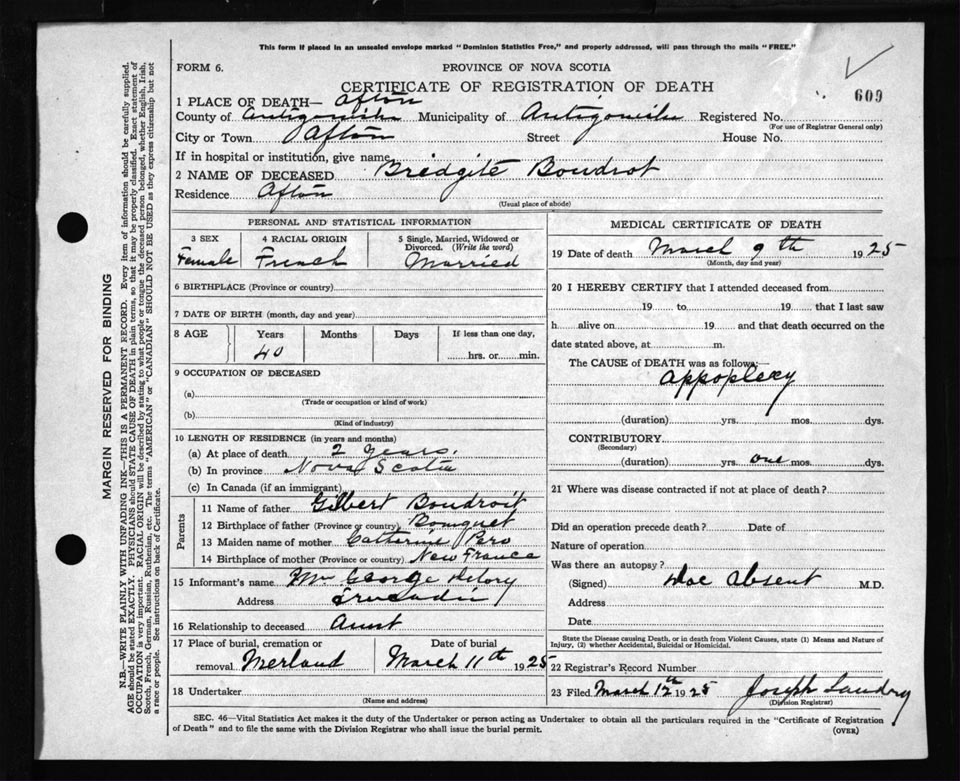 This form if placed in an unsealed envelope marked "Dominion Statistics Free," and properly addressed, will pass through the mails "FREE."
FORM 6.
PROVINCE OF NOVA SCOTIA
CERTIFICATE OF REGISTRATION OF DEATH
609
1 PLACE OF DEATH— Afton
County of Antigonish Municipality of Antigonish Registered No.
(For use of Registrar General only)
City or Town Afton Street House No.
If in hospital or institution, give name
2 NAME OF DECEASED Bridgite Boudrot
Residence Afton
(Usual place of abode)
PERSONAL AND STATISTICAL INFORMATION
3 SEX Female
4 RACIAL ORIGIN French
5 Single, Married, Widowed or Divorced. (Write the word) Married
6 BIRTHPLACE (Province or country)
7 DATE OF BIRTH (month, day and year)
8 AGE Years Months Days If less than one day,
40 hrs. or min.
9 OCCUPATION OF DECEASED
(a)
(Trade or occupation or kind of work)
(b)
(Kind of industry)
10 LENGTH OF RESIDENCE (in years and months)
(a) At place of death 2 years.
(b) In province Nova Scotia
(c) In Canada (if an immigrant)
Parents
11 Name of father Gilbert Boudroit
12 Birthplace of father (Province or country)
13 Maiden name of mother Catherine
14 Birthplace of mother (Province or country) New France
15 Informant's name George Delory
Address Tracadie
16 Relationship to deceased Aunt
17 Place of burial, cremation or removal Merland
Date of burial March 11th 1925
18 Undertaker
(Name and address)
MEDICAL CERTIFICATE OF DEATH
19 Date of death March 9th 1925
(Month, day and year)
20 I HEREBY CERTIFY that I attended deceased from
19 to 19 that I last saw
h alive on 19 and that death occurred on the
date stated above, at m.
The CAUSE of DEATH was as follows:—
Appoplexy
(duration) yrs. mos. dys.
CONTRIBUTORY
(Secondary)
(duration) yrs. one mos. dys.
21 Where was disease contracted if not at place of death?
Did an operation precede death? Date of
Nature of operation
Was there an autopsy?
(Signed) Doc Absent M.D.
Address
Date
State the Disease causing Death, or in death from Violent Causes, state (1) Means and Nature of
Injury, (2) whether Accidental, Suicidal or Homicidal.
22 Registrar's Record Number
23 Filed March 12th 1925 Joseph Landry
(Division Registrar)
SEC. 46—Vital Statistics Act makes it the duty of the Undertaker or person acting as Undertaker to obtain all the particulars required in the "Certificate of Registration
of Death" and to file the same with the Division Registrar who shall issue the burial permit.
(OVER)
MARGIN RESERVED FOR BINDING
N.B.—WRITE PLAINLY WITH UNFADING INK—THIS IS A PERMANENT RECORD. Every item of information should be carefully supplied.
AGE should be stated EXACTLY. PHYSICIANS should STATE CAUSE OF DEATH in plain terms, so that it may be properly classified. Exact statement of
OCCUPATION is very important. RACIAL ORIGIN will be described by stating to what people or tongue the deceased person belonged, whether English, Irish,
Scotch, French, German, Russian, Ruthenian, etc. The terms "AMERICAN" or "CANADIAN" SHOULD NOT BE USED as they express citizenship but not
a race or people. See instructions on back of Certificate.